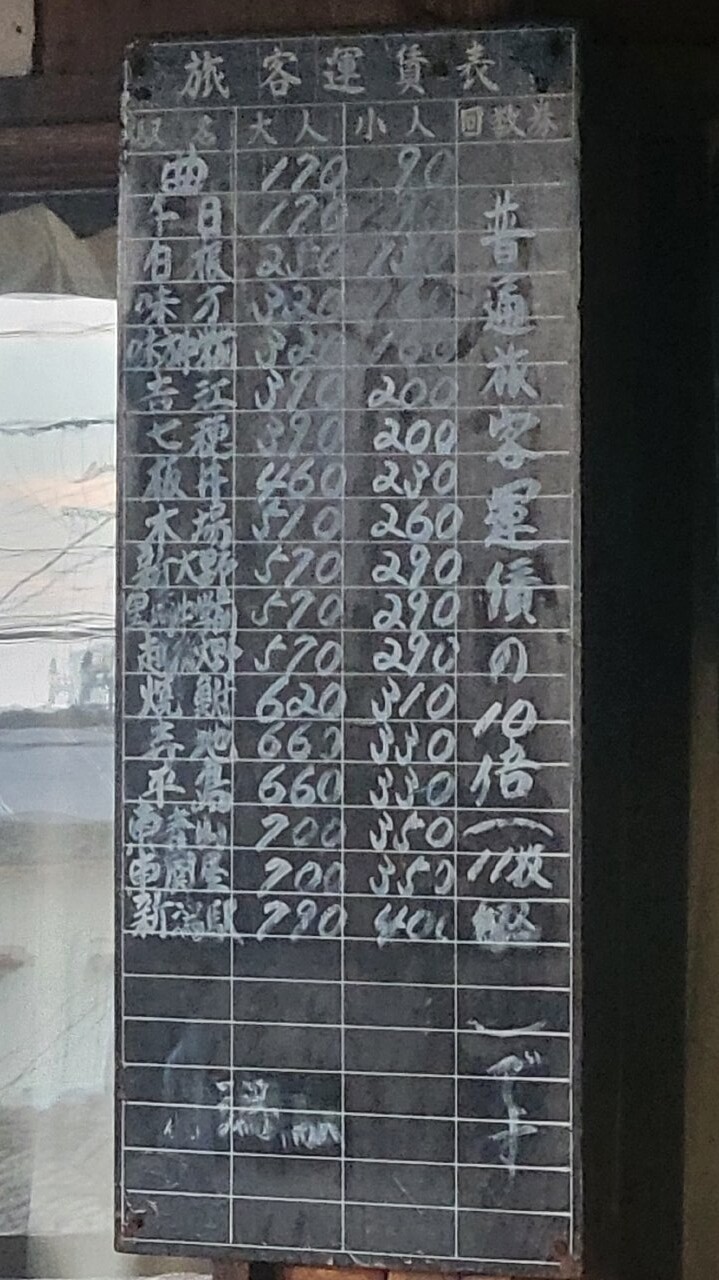 旅客運賃表
駅名 大人 小人 回数券
曲 170 90
七日 170
白根 250 130
味方 320 160
味 320 160
吉江 390 200
七穂 390 200
板井 460 230
木場 510 260
新大野 570 290
570 290
越後大野 570 290
焼鮒 620 310
寺地 660 330
平島 660 330
東青山 700 350
東関屋 700 350
新潟駅 790 400
普通旅客運賃の10倍(11枚綴)です